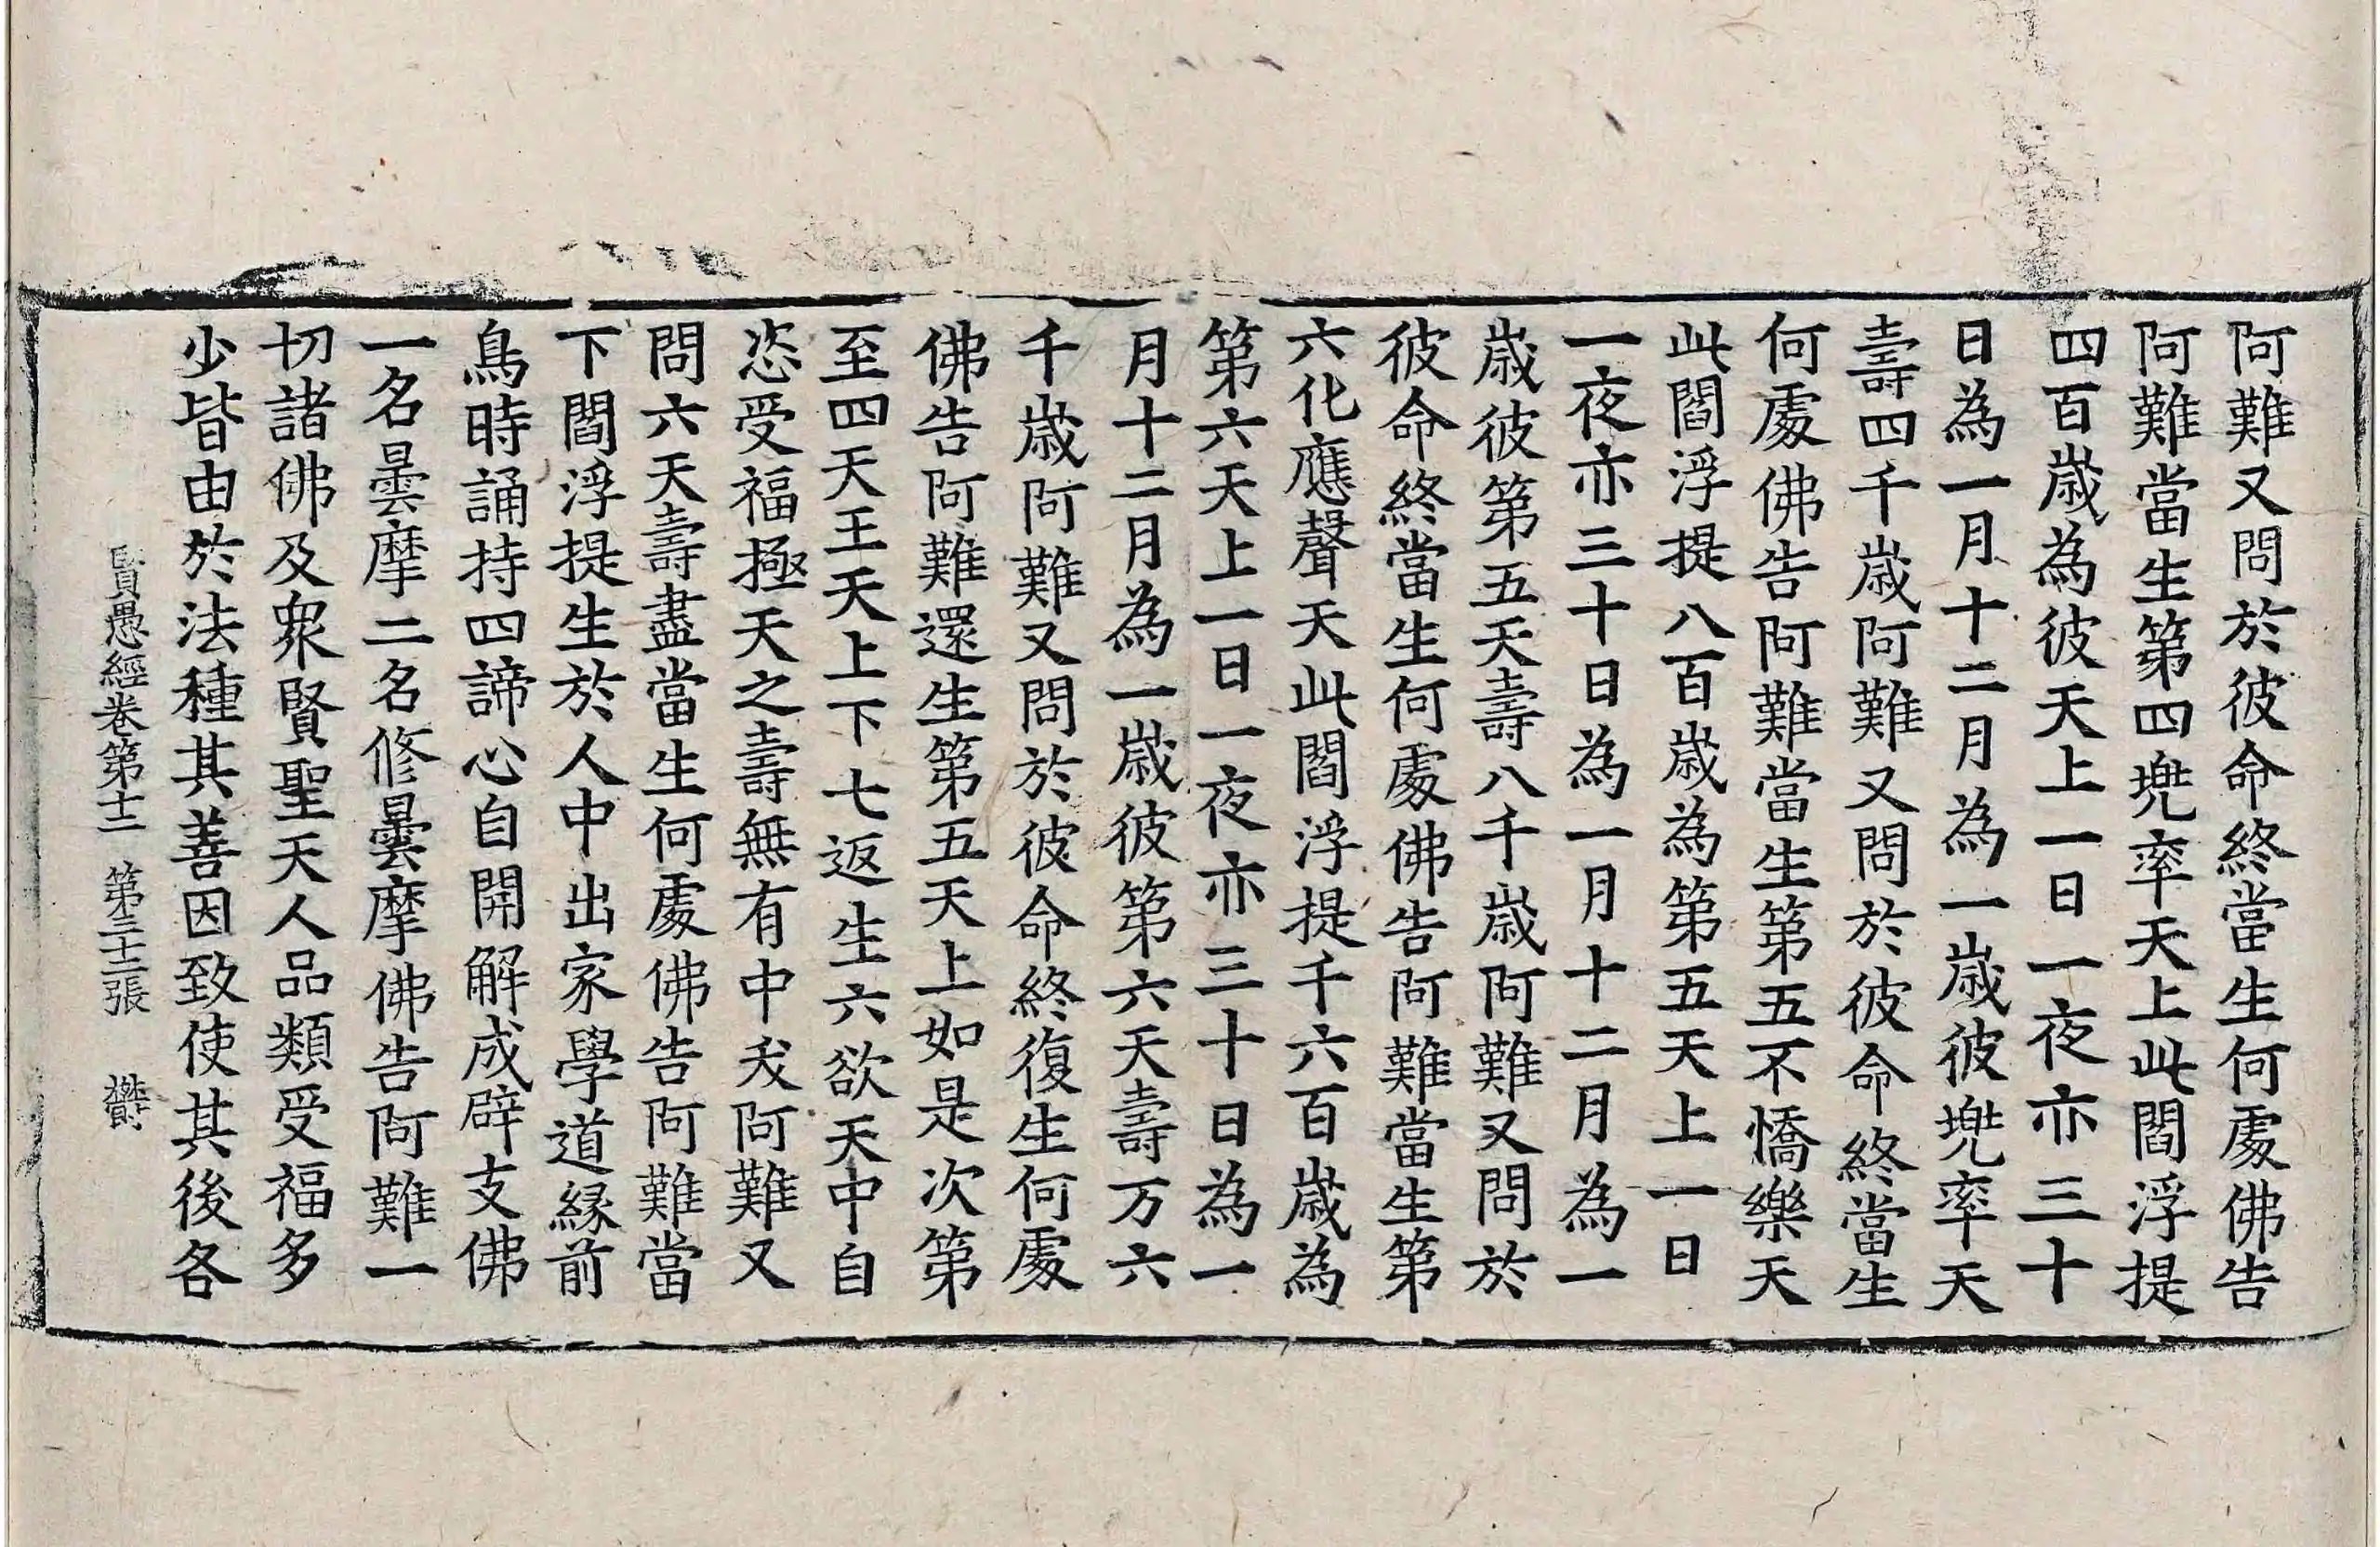 阿難又問於彼命終當生何處佛告
阿難當生第四兠率天上此閻浮提
四百歲為彼天上一日一夜亦三十
日為一月十二月為一歲彼兠率天
壽四千歲阿難又問於彼命終當生
何處佛告阿難當生第五不憍樂天
此閻浮提八百歲為第五天上一日
一夜亦三十日為一月十二月為一
歲彼第五天壽八千歲阿難又問於
彼命終當生何處佛告阿難當生第
六化應聲天此閻浮提千六百歲為
第六天上一日一夜亦三十日為一
月十二月為一歲彼第六天壽万六
千歲阿難又問於彼命終復生何處
佛告阿難還生第五天上如是次第
至四天王天上下七返生六欲天中自
恣受福極天之壽無有中夭阿難又
問六天壽盡當生何處佛告阿難當
下閻浮提生於人中出家學道緣前
鳥時誦持四諦心自開解成辟支佛
一名曇摩二名修曇摩佛告阿難一
切諸佛及眾賢聖天人品類受福多
少皆由於法種其善因致使其後各
賢愚經卷第十二 第三十二張 欝